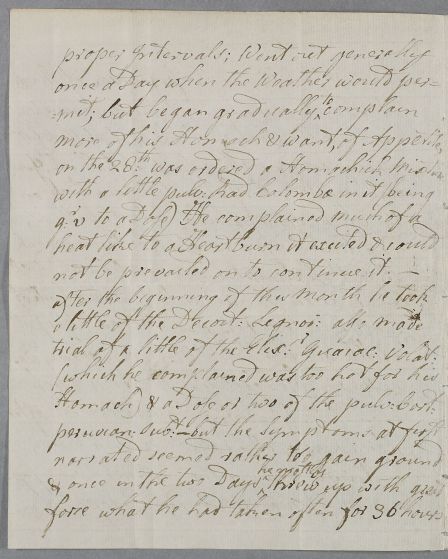 proper Intervals; Went out generally
once a Day when the Weather would per=
=mit; but began gradually to complain
more of his Stomach & want of Appetite,
on the 28th. was ordered a Stomachick Mixture
with a little pulv: Rad Colomba in it being
gr v to a Dose) He complained much of a
heat like to a Heartburn it excited & could
not be prevailed on to continue it. —
After the beginning of this Month he took
a little of the Decoct: Lignor: also made
trial of a little of the Elix:r Guaiac: Volat:
(which he complained was too hot for his
Stomach) & a Dose or two of the pulv: Cort:
peruvian: but the symptoms at first
narrated seemed rather to gain ground
& once in the two Days he mostly threw up with great
force what he had taken often for 36 hours